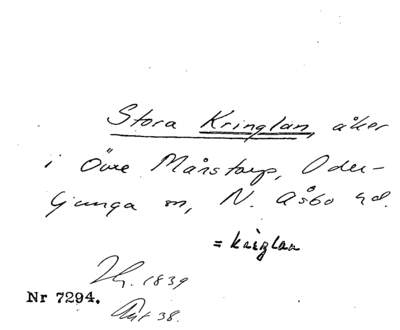 Stora Kringlan, åker
i Övre Månstorp, Oder-
ljunga sn, N. Åsbo hd.
= kringlan
1839
Nr 7294.
Akt 38.